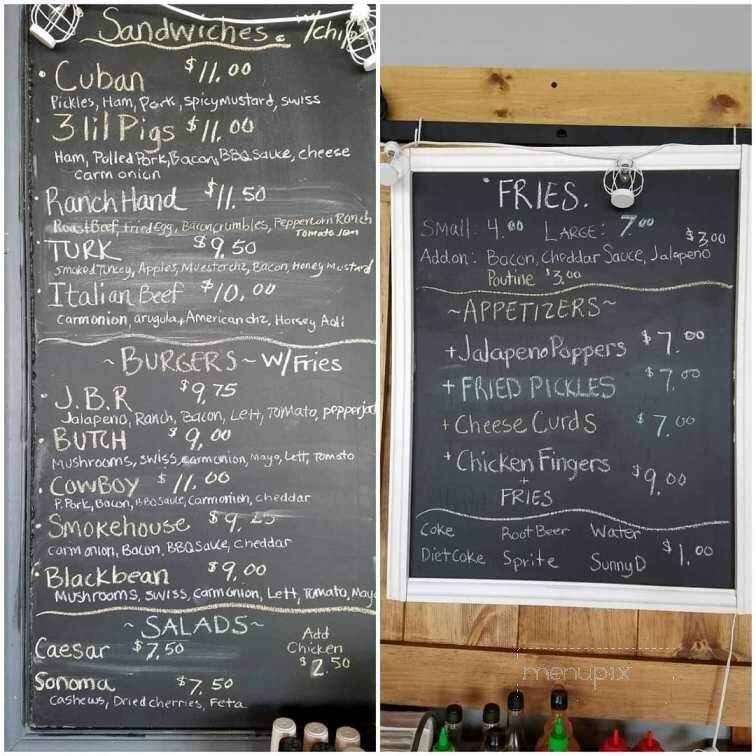 Sandwiches. w/chip
• Cuban $11.00
Pickles, Ham, Pork, spicymustard, swiss
• 3 lil Pigs $11.00
Ham, Pulled Pork, Bacon, BBQ Sauce, cheese
carm onion
• Ranch Hand $11.50
Roast Beef, fried Egg, Bacon crumbles, Peppercorn Ranch
Tomato Jam
• TURK $9.50
smoked Turkey, Apples, Muesterchz, Bacon, Honey Mustard
• Italian Beef $10.00
carmonion, arugula, American chz, Horsey Aoli
~BURGERS~ w/Fries
• J.B.R $9.75
Jalapeno, Ranch, Bacon, Lett, Tomato, pepperja
• BUTCH $9.00
Mushrooms, swiss, carmonion, mayo, Lett, Tomato
• COWBOY $11.00
P.Pork, Bacon, BBQ sauce, carmonion, cheddar
• Smokehouse $9.25
carm onion, Bacon, BBQ sauce, cheddar
• Blackbean $9.00
Mushrooms, swiss, carm onion, Lett, Tomato, Mayo
~SALADS~
Caesar $7.50
Add
Chicken
$2.50
Sonoma $7.50
Cashews, Dried cherries, Feta
FRIES.
Small: 4.00 LARGE: 7.00
Addon: Bacon, Cheddar Sauce, Jalapeno $3.00
Poutine $3.00
~APPETIZERS~
+Jalapeno Poppers $7.00
+FRIED PICKLES $7.00
+Cheese Curds $7.00
+Chicken Fingers $9.00
+
FRIES
Coke Root Beer Water
Diet Coke Sprite SunnyD $1.00
menupix